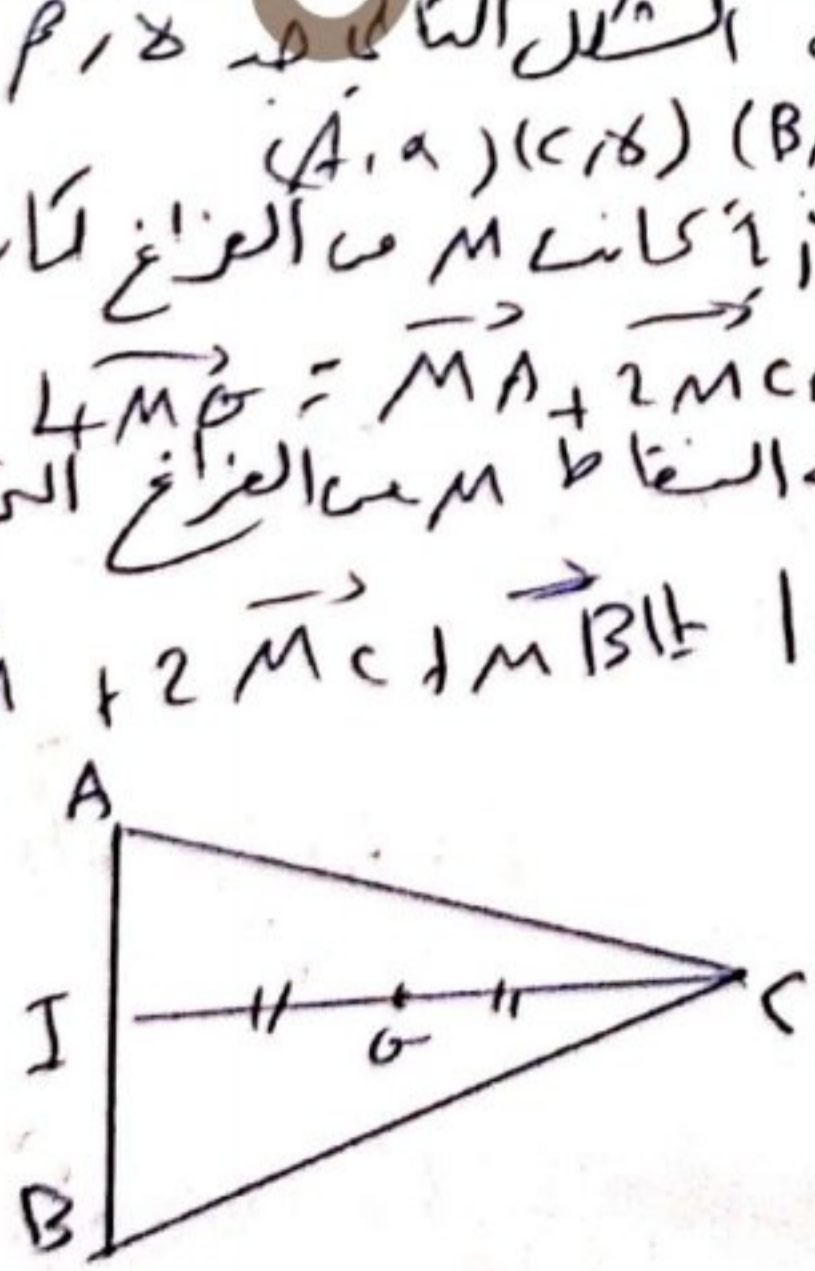 الشكل التالي جد γ, β
(A, α) (C, γ) (B,
كانت M من الفراغ
4MG = MA + 2MC
النقاط M من الفراغ
+ 2MC + MB ||=
A
I
G
C
B